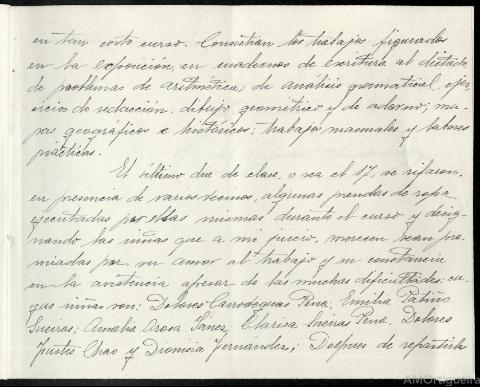 en tan corto curso. Consistían los trabajos figurados
en la exposición, en cuadernos de escritura al dictado,
de problemas de aritmética; de análisis gramatical, ejer
cicios de redacción; dibujo geométrico y de adorno; ma-
pas geográficos e históricos; trabajos manuales y labores
prácticas.
El último dia de clase, o sea el 17, se rifaron
en presencia de varios vecinos, algunas prendas de ropa
ejecutadas por ellas mismas durante el curso y desig-
nando las niñas que a mi juicio, merecen sean pre-
miadas por su amor al trabajo y su constancia
en la asistencia apesar de las muchas dificultades: cu-
yas niñas son: Dolores Carrodeguas Pena, Emilia Patiño
Sueiras; Amalia Arosa Sanez, Clarisa Sueiras Pena, Dolores
Fustes Chao y Dionisia Fernández; Despues de repartirle
AMOrtigueira